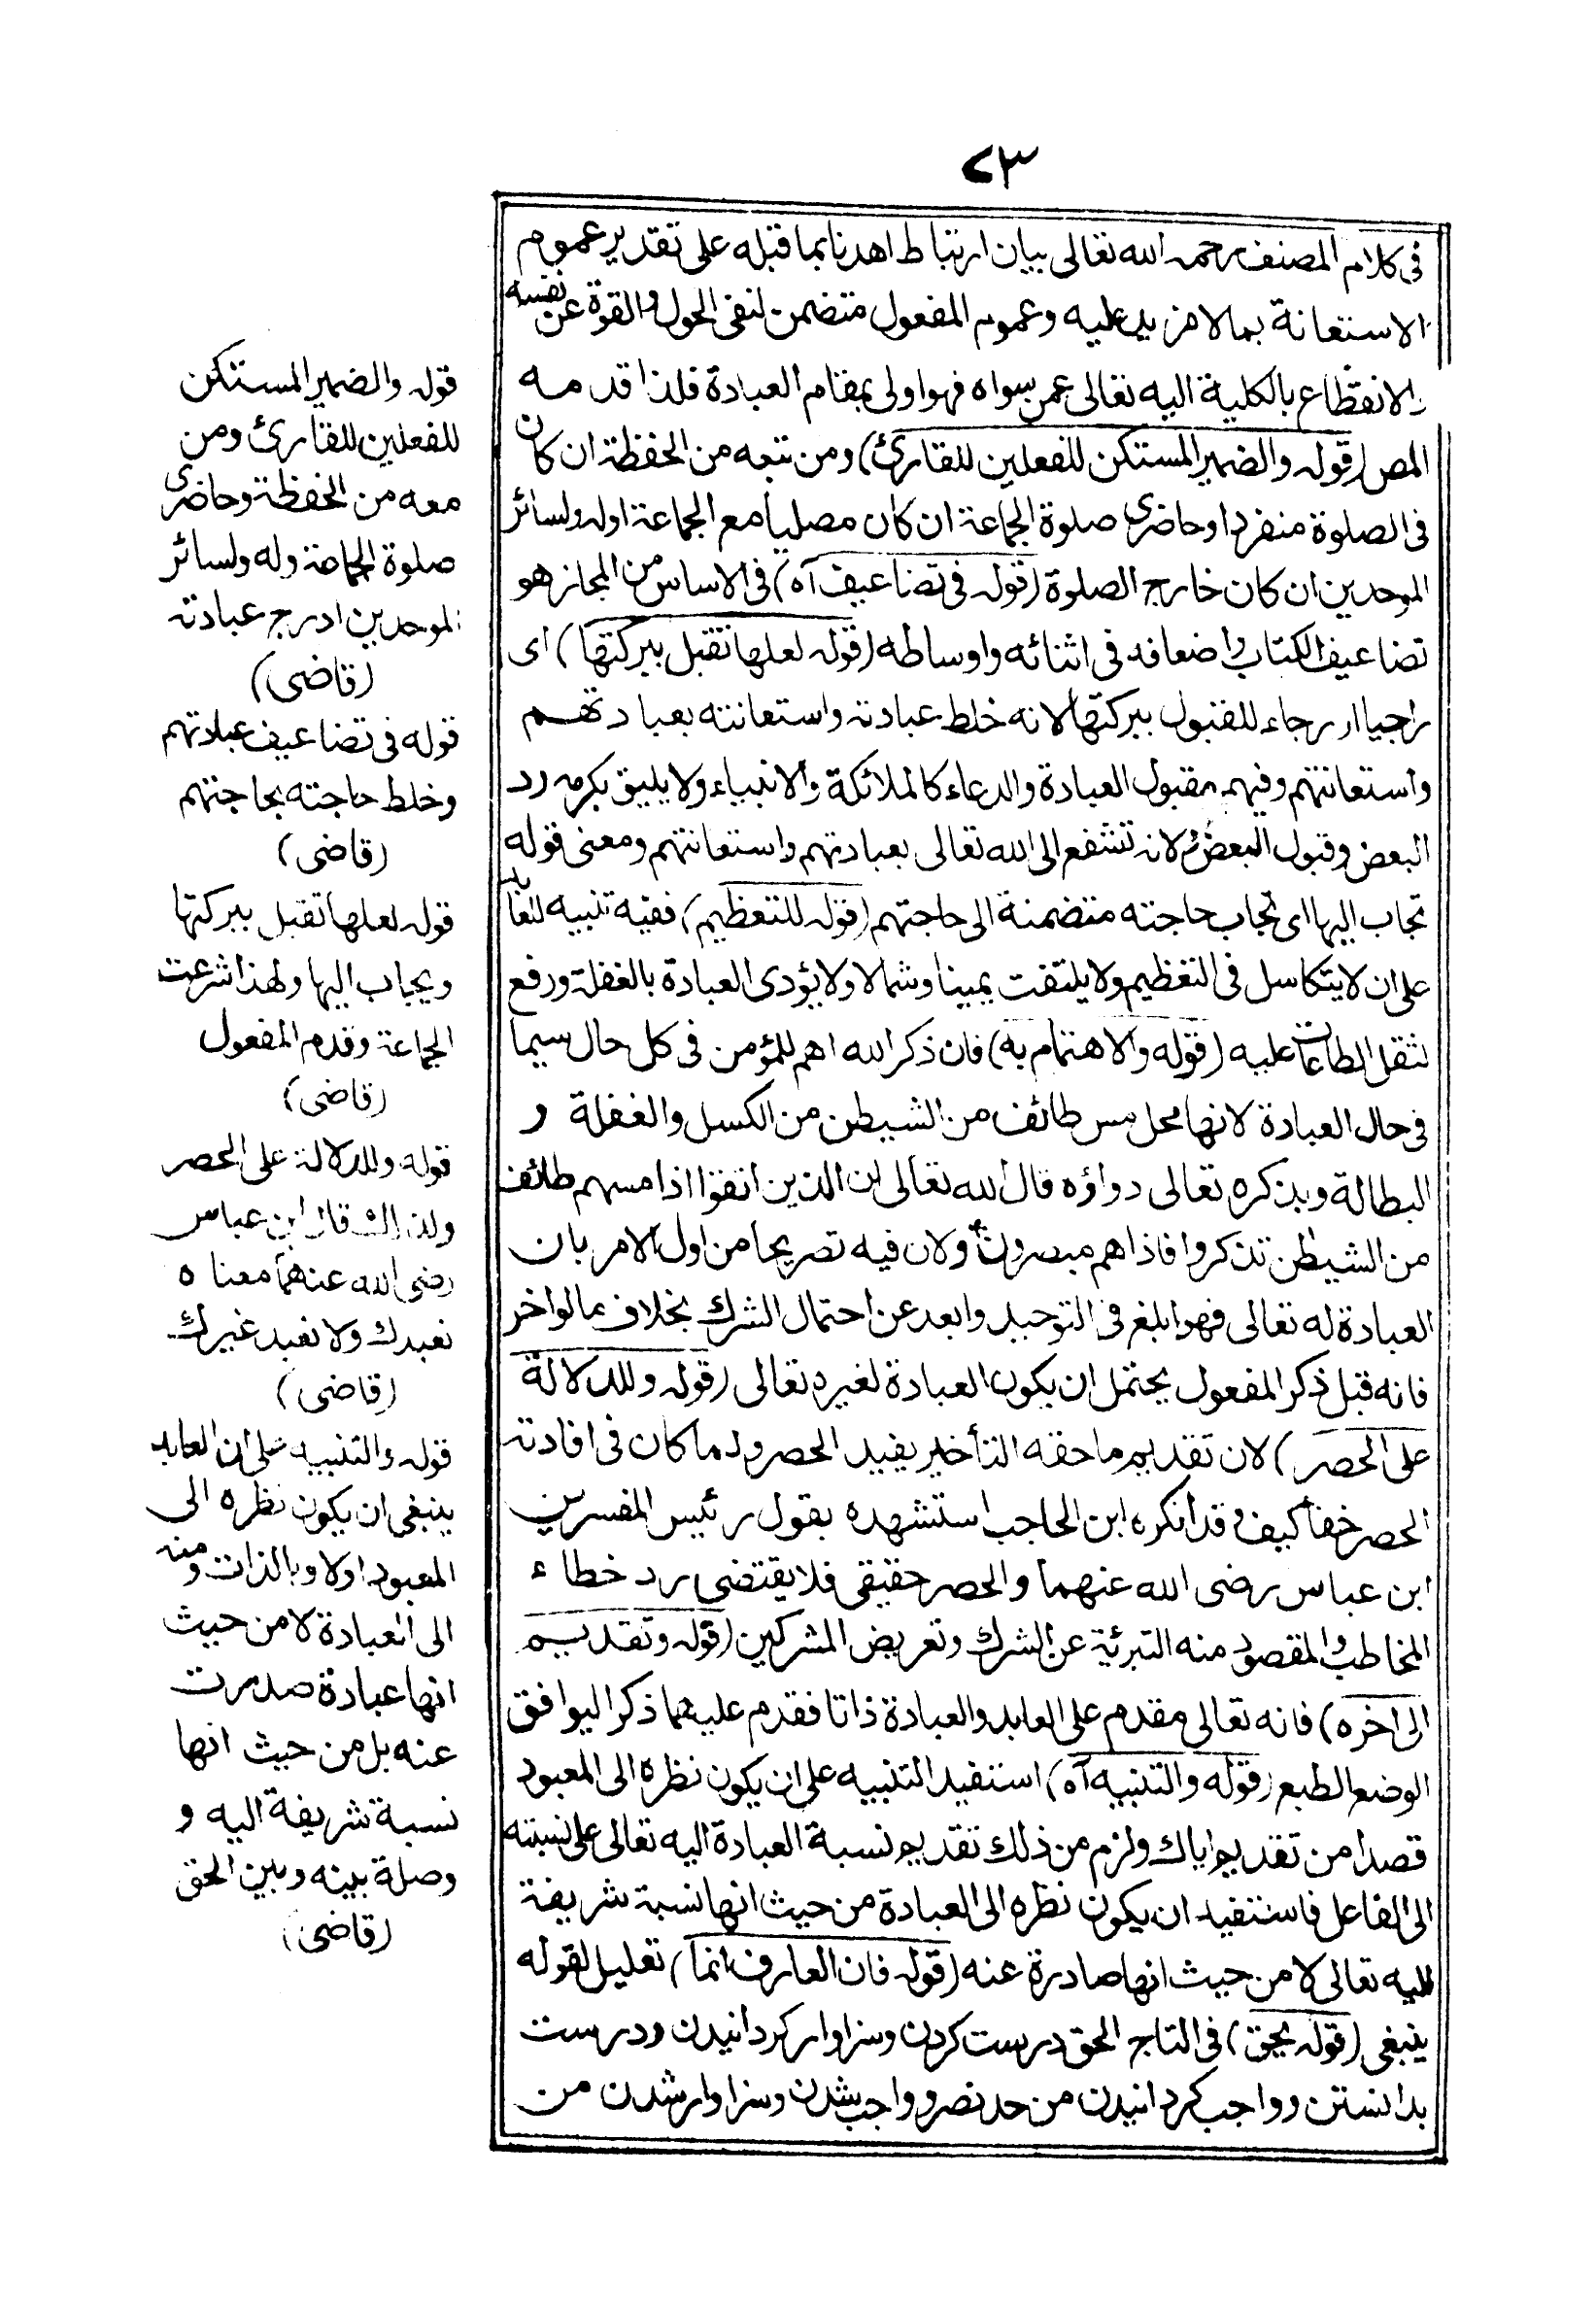 ٧٣
فى كلام المصنف رحمه الله تعالى بيان ارتباط اهدنا بما قبله على تقدير عموم
الاستعانة بما لا مزيد عليه وعموم المفعول متضمن لنفى الحول والقوة عن نفسه
والانقطاع بالكلية اليه تعالى عمن سواه فهو اولى بمقام العبادة فلذا قدمه
المص (قوله والضمير المستكن للفعلين للقارئ) ومن تبعه من الحفظة ان كان
فى الصلوة منفردا وحاضرى صلوة الجماعة ان كان مصليا مع الجماعة اوله ولسائر
الموحدين ان كان خارج الصلوة (قوله فى تضاعيف آه) فى الاساس من المجاز هو
تضاعيف الكتاب واضعافه فى اثنائه واوساطه (قوله لعلها تقبل ببركتها) اى
راجيا او رجاء للقبول ببركتها لانه خلط عبادته واستعانته بعبادتهم
واستعانتهم وفيهم مقبول العبادة والدعاء كالملائكة والانبياء ولا يليق بكرمه رد
البعض وقبول البعض لانه تشفع الى الله تعالى بعبادتهم واستعانتهم ومعنى قوله
تجاب اليها اى تجاب حاجته متضمنة الى حاجتهم (قوله للتعظيم) ففيه تنبيه للعابد
على ان لا يتكاسل فى التعظيم ولا يلتفت يمينا وشمالا ولا يؤدى العبادة بالغفلة ورفع
لثقل الطاعات عليه (قوله والاهتمام به) فان ذكر الله اهم للمؤمن فى كل حال سيما
فى حال العبادة لانها محل مس طائف من الشيطن من الكسل والغفلة و
البطالة وبذكره تعالى دواؤه قال الله تعالى ان الذين اتقوا اذا مسهم طائف
من الشيطن تذكروا فاذا هم مبصرون ولان فيه تصريحا من اول الامر بان
العبادة له تعالى فهو ابلغ فى التوحيد وابعد عن احتمال الشرك بخلاف ما لو اخر
فانه قبل ذكر المفعول يحتمل ان يكون العبادة لغيره تعالى (قوله وللدلالة
على الحصر) لان تقديم ما حقه التأخير يفيد الحصر ولما كان فى افادته
الحصر خفأ كيف وقد انكره ابن الحاجب استشهده بقول رئيس المفسرين
ابن عباس رضى الله عنهما والحصر حقيقى فلا يقتضى رد خطاء
المخاطب والمقصود منه التبرئة عن الشرك وتعريض المشركين (قوله وتقديم
الى اخره) فانه تعالى مقدم على العابد والعبادة ذاتا فقدم عليهما ذكرا ليوافق
الوضع الطبع (قوله والتنبيه آه) استفيد التنبيه على ان يكون نظره الى المعبود
قصدا من تقديم اياك ولزم من ذلك تقديم نسبة العبادة اليه تعالى على نسبته
الى الفاعل فاستفيد ان يكون نظره الى العبادة من حيث انها نسبة شريفة
اليه تعالى لا من حيث انها صادرة عنه (قوله فان العارف انما) تعليل لقوله
ينبغى (قوله يحق) فى التاج الحق درست كردن وسزاوار كردانيدن ودرست
بدانستن وواجب كردانيدن من حد نصر وواجب شدن وسزاوار شدن من
قوله والضمير المستكن
للفعلين للقارئ ومن
معه من الحفظة وحاضرى
صلوة الجماعة وله ولسائر
الموحدين ادرج عبادته
(قاضى)
قوله فى تضاعيف عبادتهم
وخلط حاجته بحاجتهم
(قاضى)
قوله لعلها تقبل ببركتها
ويجاب اليها ولهذا شرعت
الجماعة وقدم المفعول
(قاضى)
قوله وللدلالة على الحصر
ولذالك قال ابن عباس
رضى الله عنهما معناه
نعبدك ولا نعبد غيرك
(قاضى)
قوله والتنبيه على ان العابد
ينبغى ان يكون نظره الى
المعبود اولا وبالذات ومنه
الى العبادة لا من حيث
انها عبادة صدرت
عنه بل من حيث انها
نسبة شريفة اليه و
وصلة بينه وبين الحق
(قاضى)